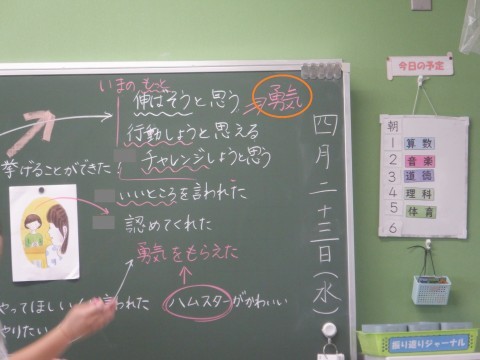 いまの もっと
伸ばそうと思う
勇気
行動しようと思える
挙げることができた
チャレンジしようと思う
いいところを言われた
認めてくれた
勇気をもらえた
やってほしい
言われた
ハムスターがかわいい
やりたい
四月二十三日(水)
今日の予定
朝
1 算数
2 音楽
3 道徳
4 理科
5 体育
6
振り返りジャーナル